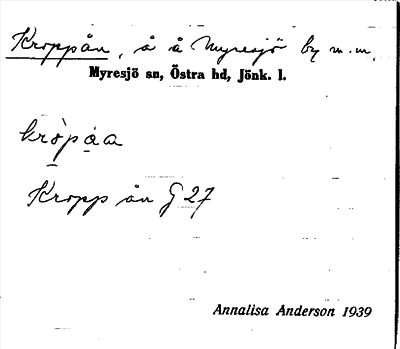 Kroppån, å å Myresjö by m.m.
Myresjö sn, Östra hd, Jönk. l.
krò̱pạ́a
Kropp ån G 27
Annalisa Anderson 1939